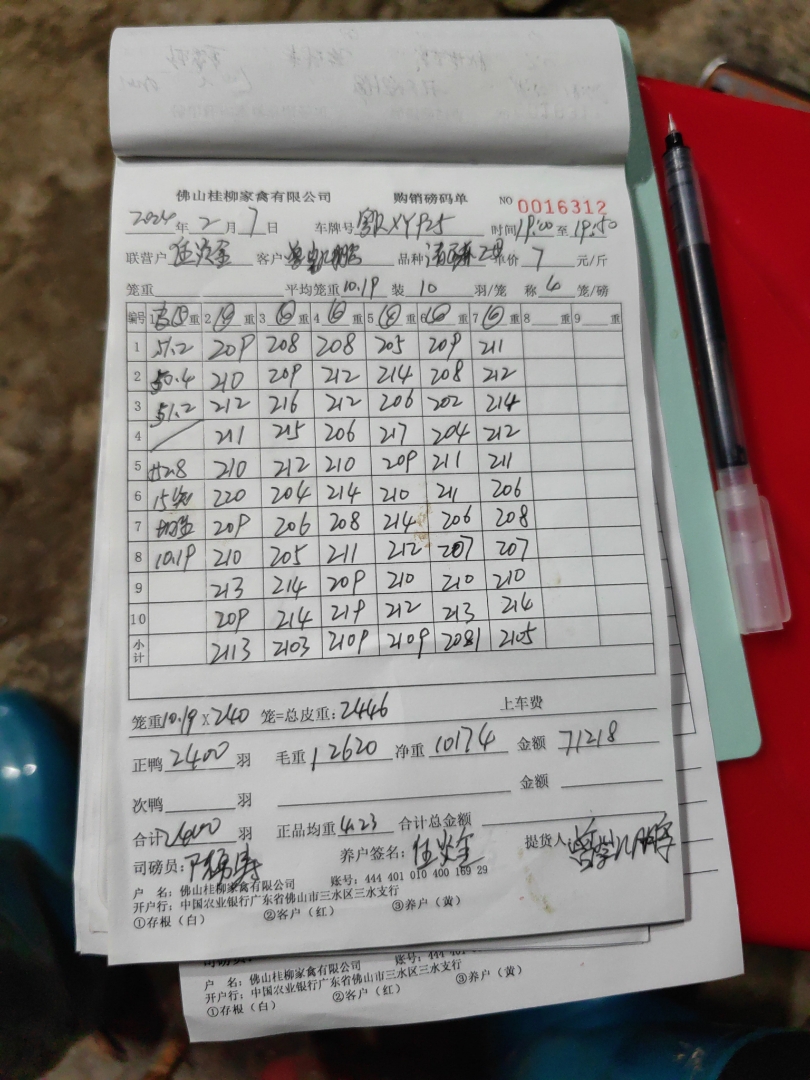 佛山桂柳家禽有限公司 购销磅码单 NO 0016312
2024年2月7日 车牌号 XYP25 时间19:00至19:50
联营户 客户 品种 单价 7 元/斤
笼重 平均笼重10.19 装 10 羽/笼 称 4 笼/磅
编号 1 重 2 重 3 重 4 重 5 重 6 重 7 重 8 重 9 重
1 51.2 209 208 208 205 209 211
2 50.4 210 209 212 214 208 212
3 51.2 212 216 212 206 202 214
4 211 215 206 217 204 212
5 152.8 210 212 210 209 211 211
6 15 220 204 214 210 211 206
7 209 206 208 214 206 208
8 10.19 210 205 211 212 207 207
9 213 214 209 210 210 210
10 209 214 219 212 213 214
小计 2113 2103 2109 2109 2081 2105
笼重10.19×240 笼=总皮重:2446 上车费
正鸭 2400 羽 毛重 12620 净重 10174 金额 71218
次鸭 羽 金额
合计 2400 羽 正品均重 4.23 合计总金额
司磅员: 养户签名: 提货人
户 名:佛山桂柳家禽有限公司 账号:444 401 010 400 169 29
开户行:中国农业银行广东省佛山市三水区三水支行
①存根(白) ②客户(红) ③养户(黄)
户 名:佛山桂柳家禽有限公司 账号:444 401
开户行:中国农业银行广东省佛山市三水区三水支行
①存根(白) ②客户(红) ③养户(黄)